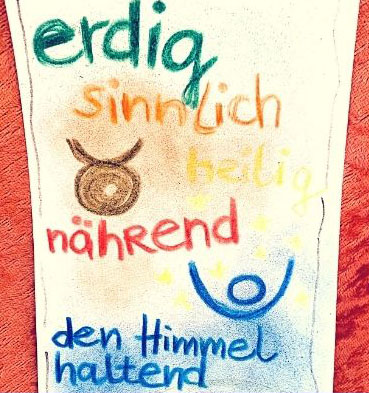 erdig
sinnlich
heilig
nährend
den Himmel
haltend